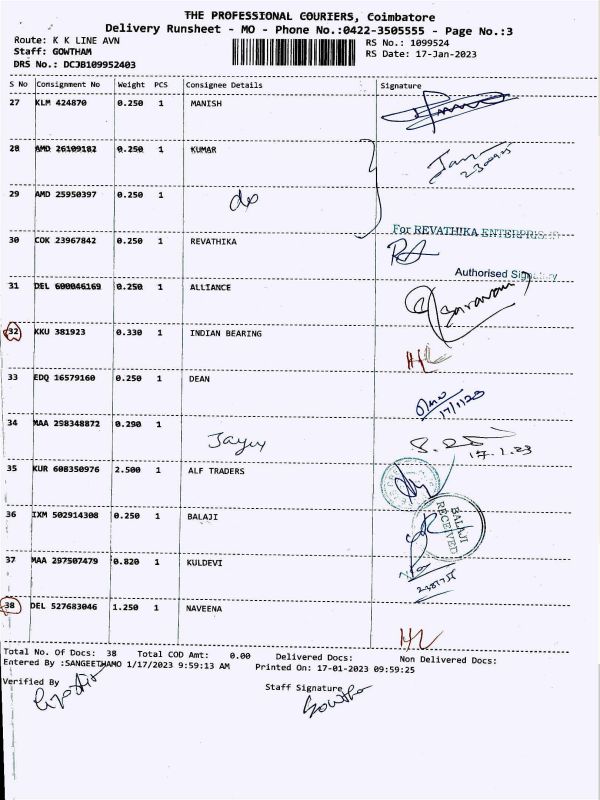 THE PROFESSIONAL COURIERS, Coimbatore
Delivery Runsheet - MO - Phone No.:0422-3505555 - Page No.:3
Route: K K LINE AVN RS No.: 1099524
Staff: GOWTHAM RS Date: 17-Jan-2023
DRS No.: DCJB109952403
S No Consignment No Weight PCS Consignee Details Signature
27 KLM 424870 0.250 1 MANISH
28 AMD 26109182 0.250 1 KUMAR
29 AMD 25950397 0.250 1 do
For REVATHIKA ENTERPRISES
30 COK 23967842 0.250 1 REVATHIKA
Authorised Signatory
31 DEL 600046169 0.250 1 ALLIANCE
Saravan
32 KKU 381923 0.330 1 INDIAN BEARING
33 EDQ 16579160 0.250 1 DEAN
17/1/23
34 MAA 298348872 0.290 1
17.1.23
35 KUR 608350976 2.500 1 ALF TRADERS
36 IXM 502914308 0.250 1 BALAJI
BALAJI
RECEIVED
37 MAA 297507479 0.820 1 KULDEVI
38 DEL 527683046 1.250 1 NAVEENA
Total No. Of Docs: 38 Total COD Amt: 0.00 Delivered Docs: Non Delivered Docs:
Entered By :SANGEETHAMO 1/17/2023 9:59:13 AM Printed On: 17-01-2023 09:59:25
Verified By Staff Signature
Gowtha